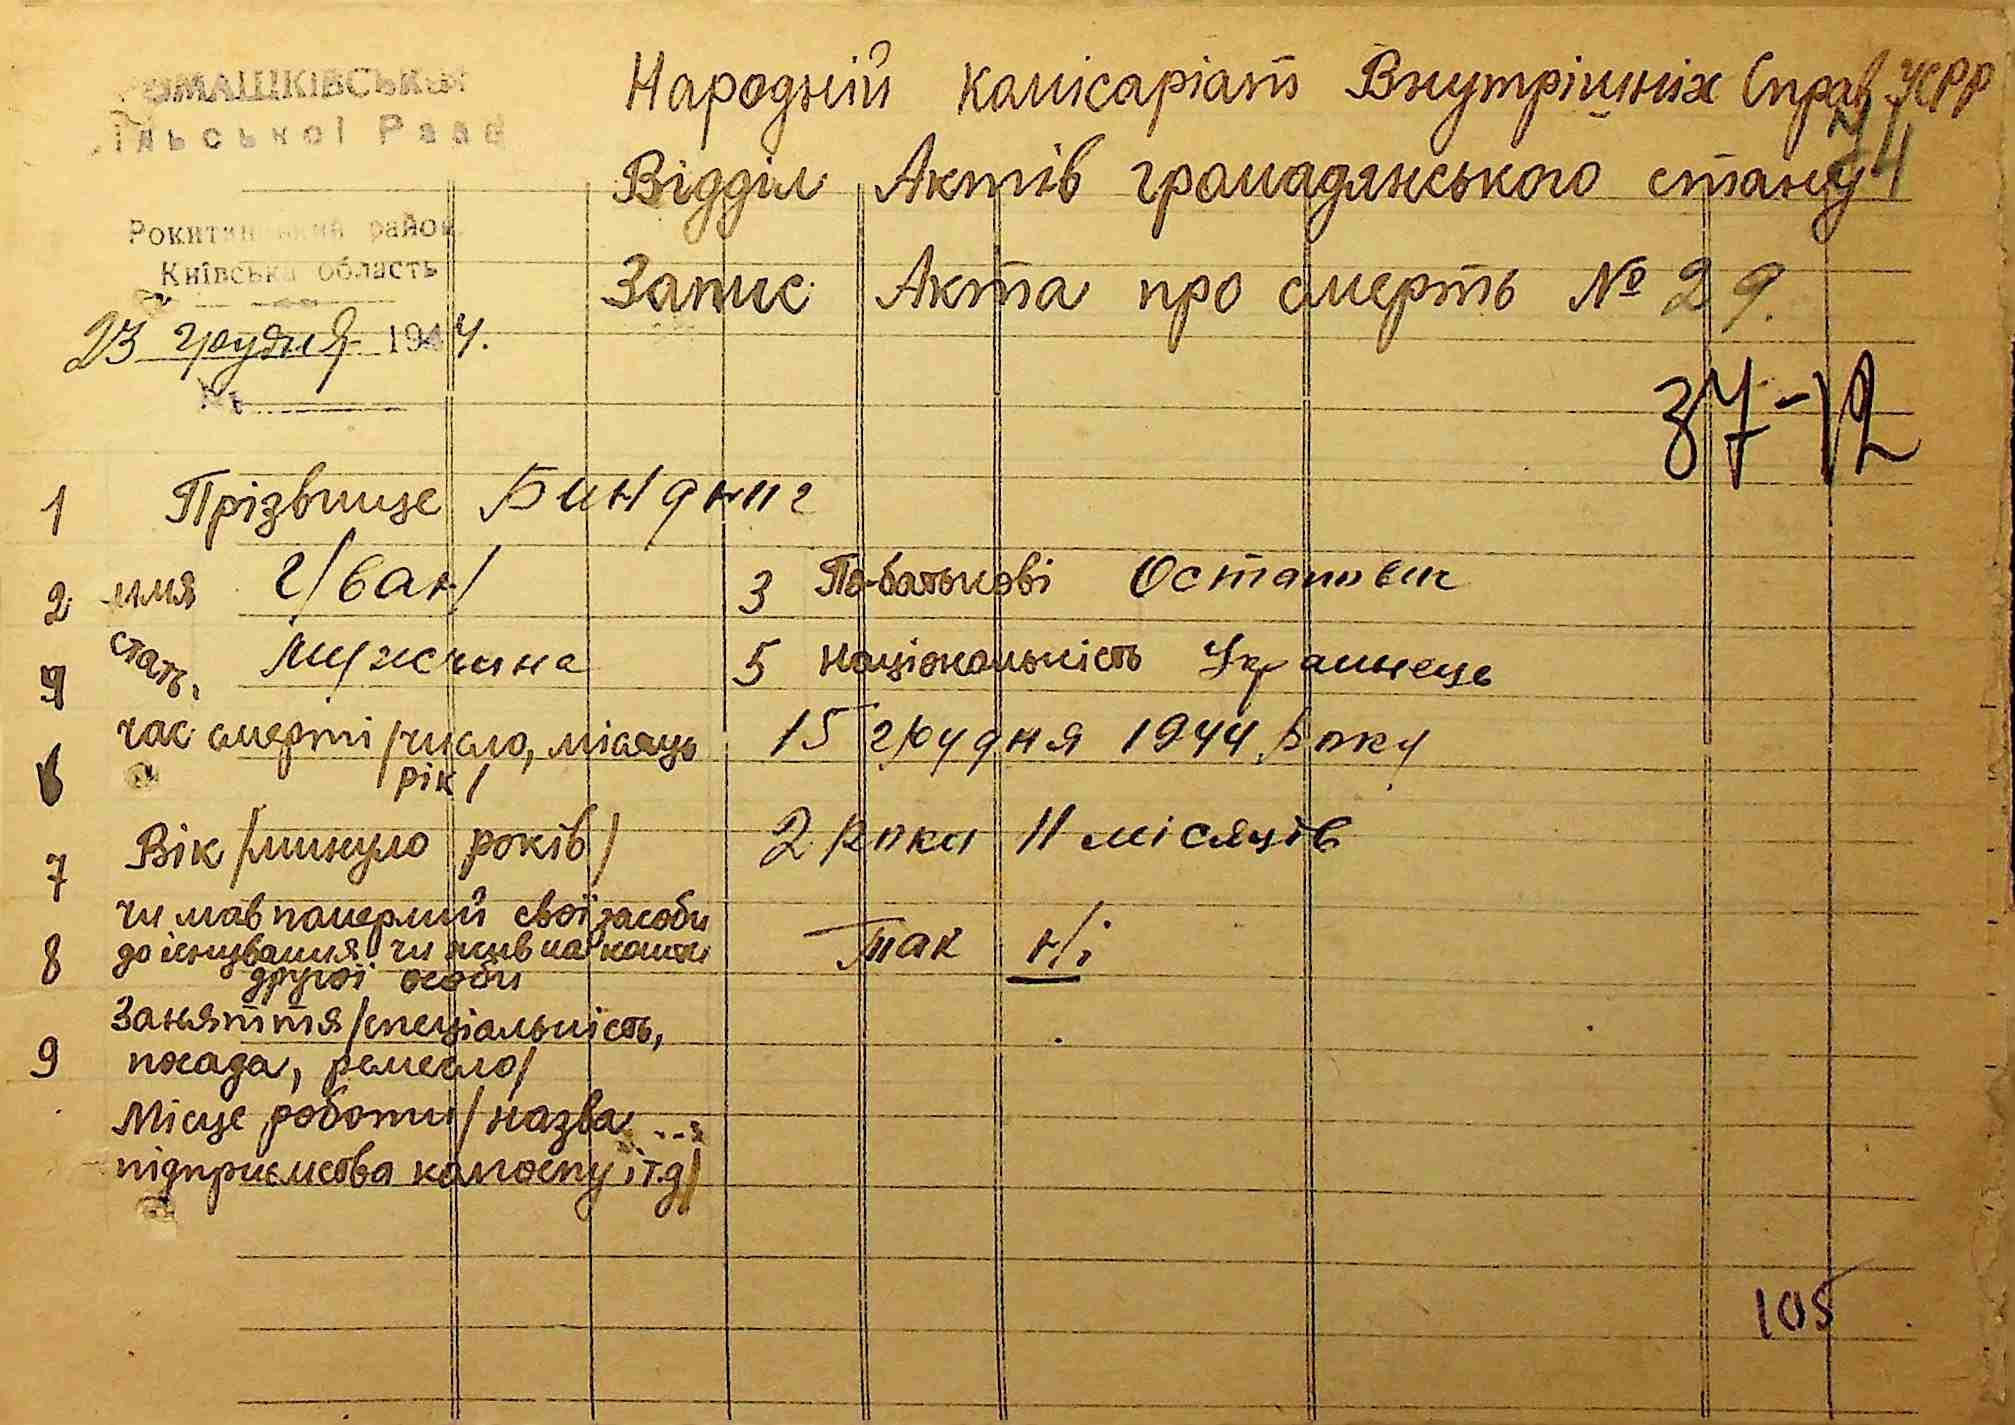 ОМАШКІВСЬК
ільської Рад
Рокитнянський район
Київська область
23 грудня 1944.
№
Народній комісаріат Внутрішніх Справ УСРР
Відділ Актів громадянського стану
Запис Акта про смерть № 29.
37-12
1 Прізвище Биндииг
2 имя Иван 3 По-батькові Остапович
4 стать, Мужчина 5 національність Украинець
6 час смерті /число, місяць рік/ 15 грудня 1944 Року
7 Вік /минуло років/ 2 Роки 11 місяців
чи мав померлий свої засоби
8 до існування чи жив на кошти Так Ні
другої особи
Заняття /спеціальність,
9 посада, ремесло/
Місце роботи /назва
підприємства колгоспу і т.д/
105